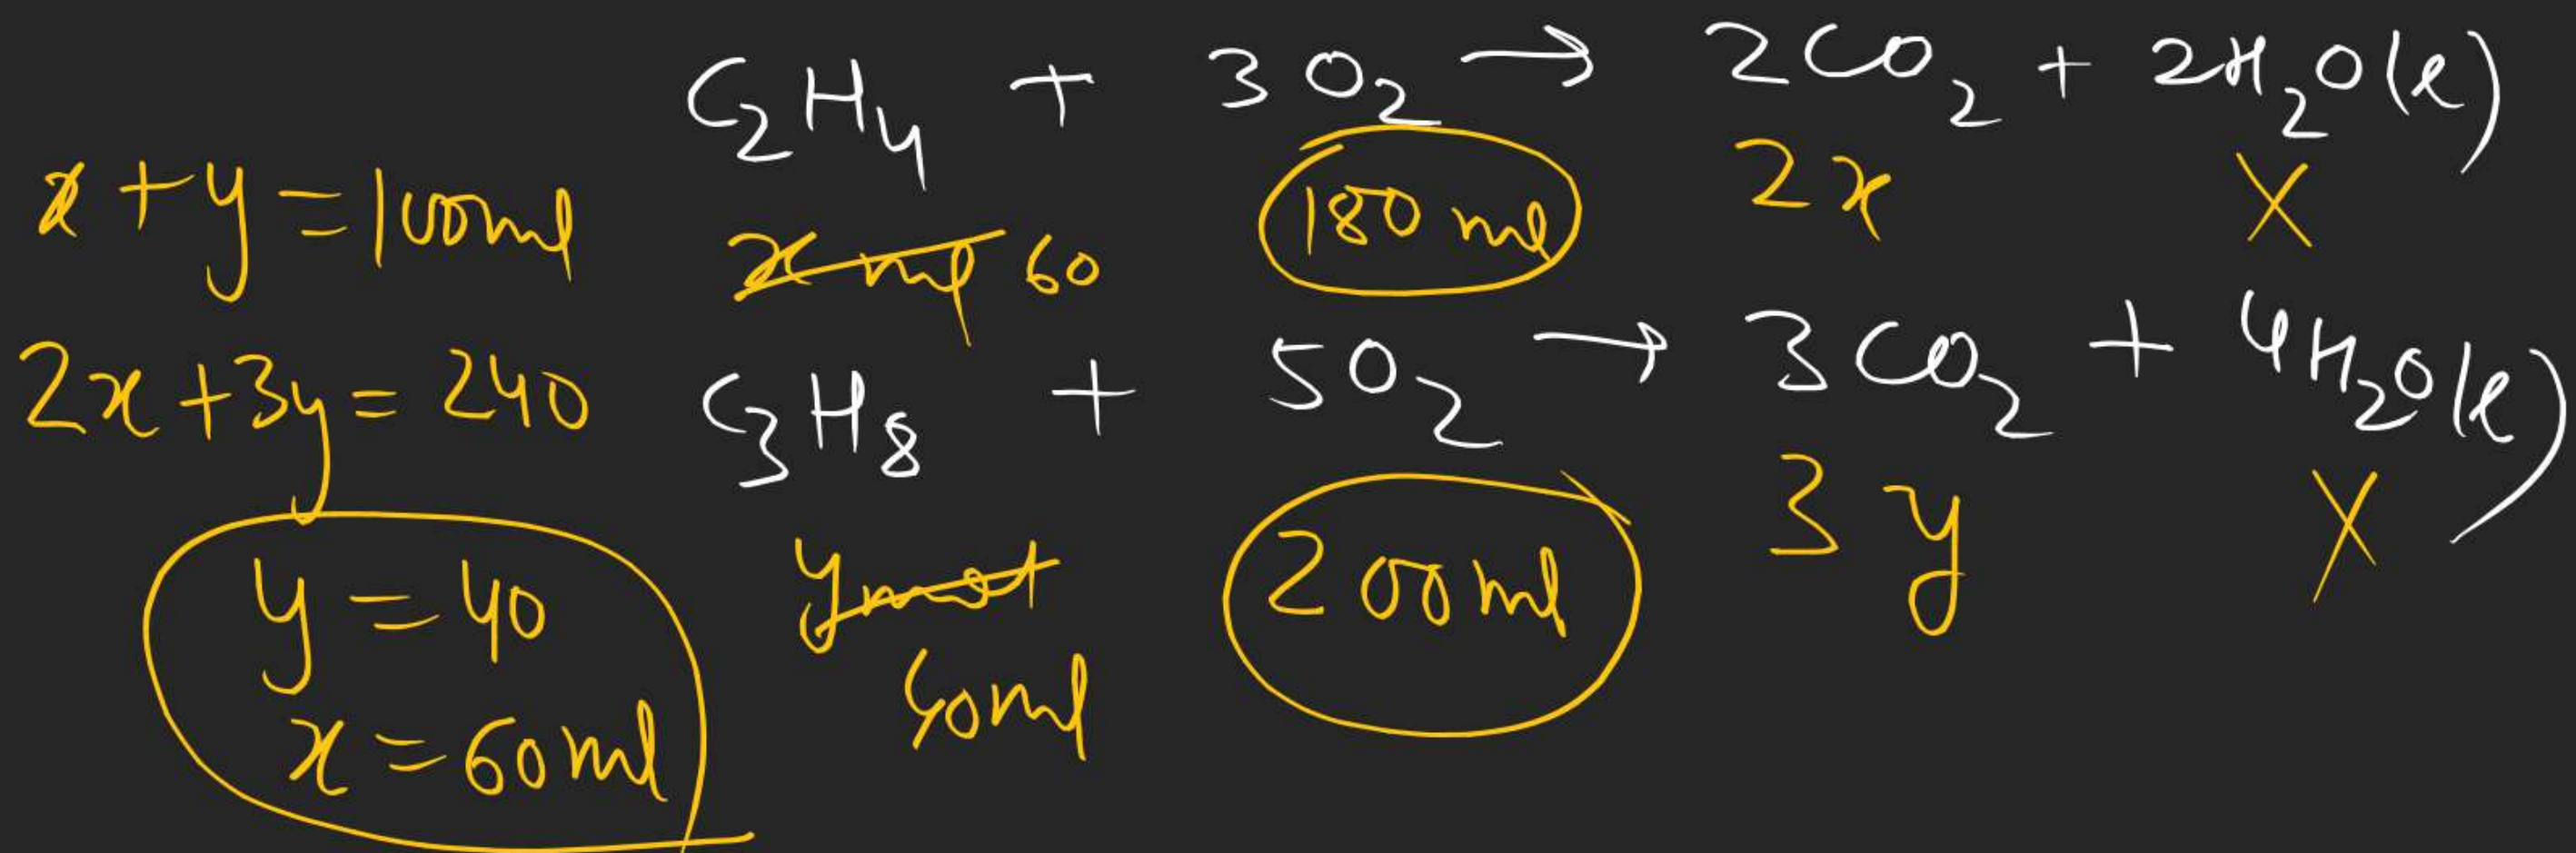 C₂H₄ + 3O₂ → 2CO₂ + 2H₂O(l)
x + y = 100ml
x ml 60
180 ml
2x
X
2x + 3y = 240
C₃H₈ + 5O₂ → 3CO₂ + 4H₂O(l)
y = 40
x = 60ml
40ml
200ml
3y
X